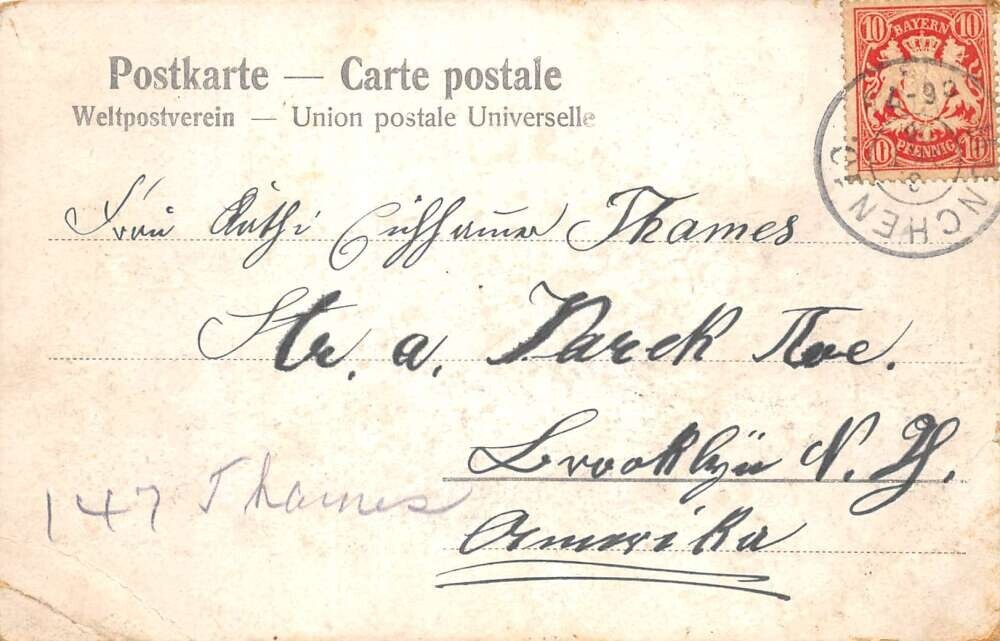 Postkarte — Carte postale
Weltpostverein — Union postale Universelle
10 BAYERN 10
10 PFENNIG 10
NCHEN
Frau Käthi Thames
Str. a. Varek Ave.
Brooklÿn N. Y.
147 Thames
Amerika